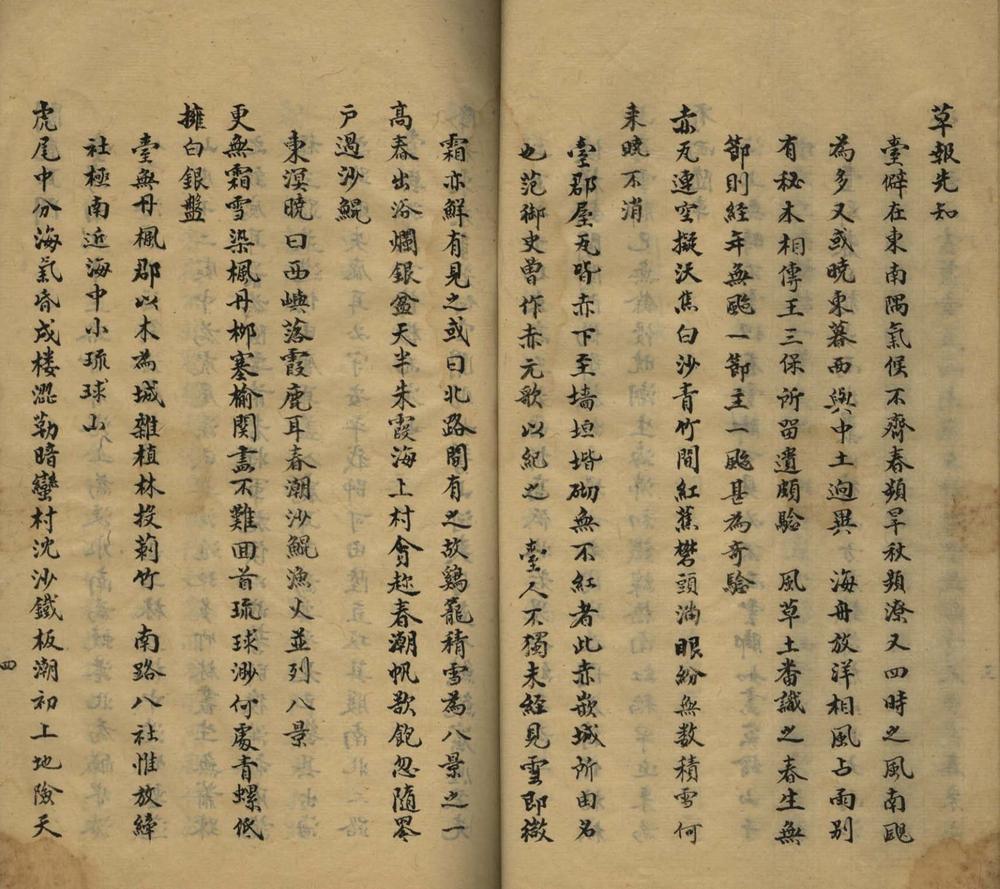 草報先知
臺僻在東南隅氣候不齊春頻旱秋頻潦又四時之風南颶
為多又或曉東暮西與中土逈異 海舟放洋相風占雨別
有秘本相傳王三保所留遺頗驗 風草土番識之春生無
節則經年無颱一節主一颱甚為奇驗
赤瓦連空擬沃焦白沙青竹間紅蕉礬頭淌眼紛無数積雪何
来曉不消
臺郡屋瓦皆赤下至墙垣堦砌無不紅者此赤嵌城所由名
也范御史曾作赤瓦歌以紀之 臺人不獨未經見雪即微
霜亦鮮有見之或曰北路間有之故鷄籠積雪為八景之一
高舂出浴爛銀盆天半朱霞海上村會趂春潮帆欲飽忽隨罛
户過沙鯤
東溟曉日西嶼落霞鹿耳春潮沙鯤漁火並列八景
更無霜雪染楓丹柳塞榆関畵不難囬首琉球渺何處青螺低
擁白銀盤
臺無丹楓郡以木為城雜植林投莿竹 南路八社惟放縴
社極南近海中小琉球山
虎尾中分海氣昏成楼澀勒暗蠻村沈沙鐵板潮初上地險天
四